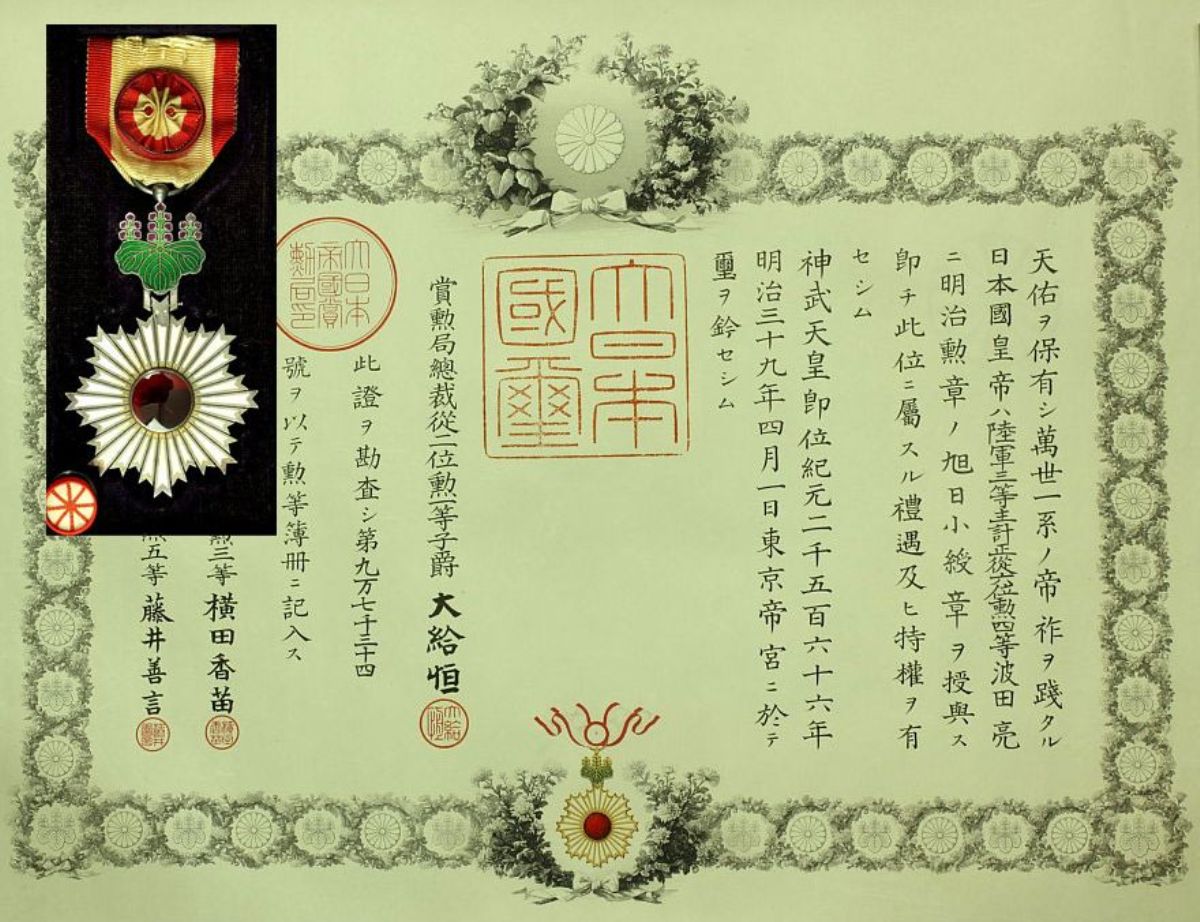 天佑ヲ保有シ萬世一系ノ帝祚ヲ踐タル
日本國皇帝ハ陸軍三等主計正從六位勲四等波田亮
ニ明治勲章ノ旭日小綬章ヲ授與ス
卽チ此位ニ屬スル禮遇及ヒ特權ヲ有
セシム
神武天皇卽位紀元二千五百六十六年
明治三十九年四月一日東京帝宮ニ於テ
璽ヲ鈐セシム
大日本
國璽
賞勲局總裁從二位勲一等子爵 大給恒
大給恒
大日本
帝國賞
勲局印
此證ヲ勘査シ第九万七千三十四
號ヲ以テ勲等簿冊ニ記入ス
勲三等 横田香苗
五等 藤井善言